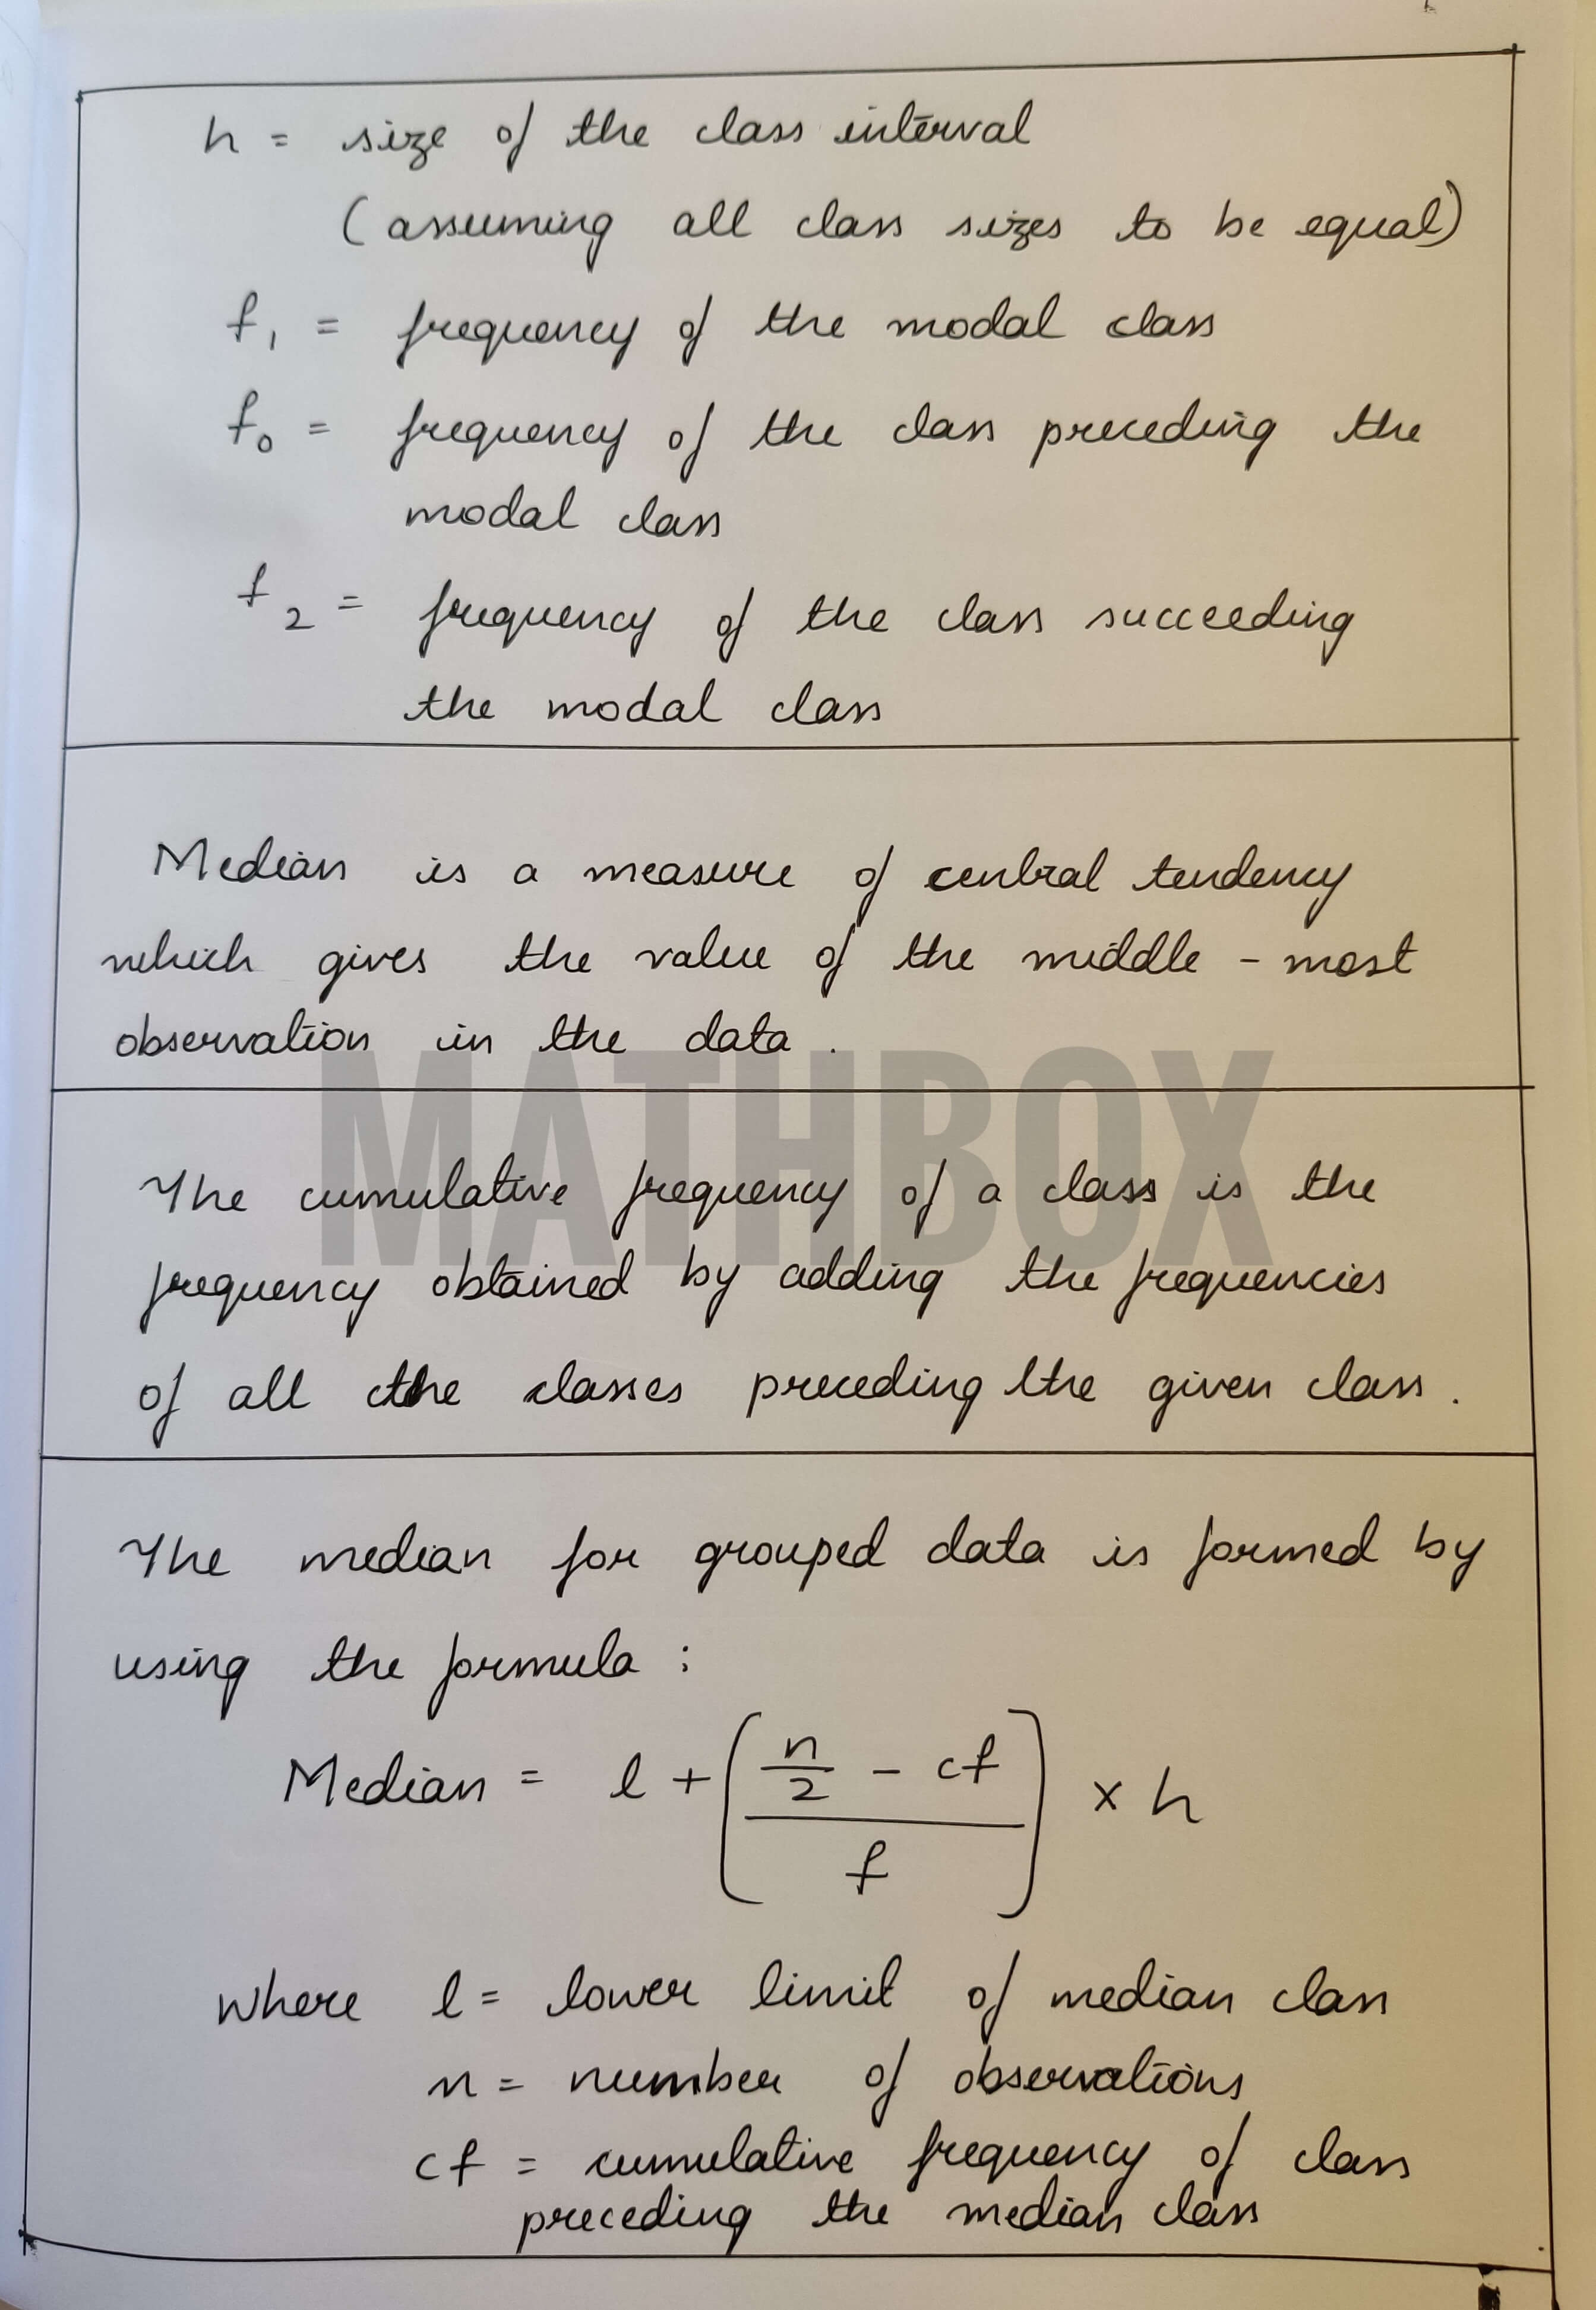 h = size of the class interval
(assuming all class sizes to be equal)
f₁ = frequency of the modal class
f₀ = frequency of the class preceding the
modal class
f₂ = frequency of the class succeeding
the modal class
Median is a measure of central tendency
which gives the value of the middle - most
observation in the data .
MATHBOX
The cumulative frequency of a class is the
frequency obtained by adding the frequencies
of all the classes preceding the given class .
The median for grouped data is formed by
using the formula :
Median = l + ( (n/2 - cf) / f ) × h
where l = lower limit of median class
n = number of observations
cf = cumulative frequency of class
preceding the median class